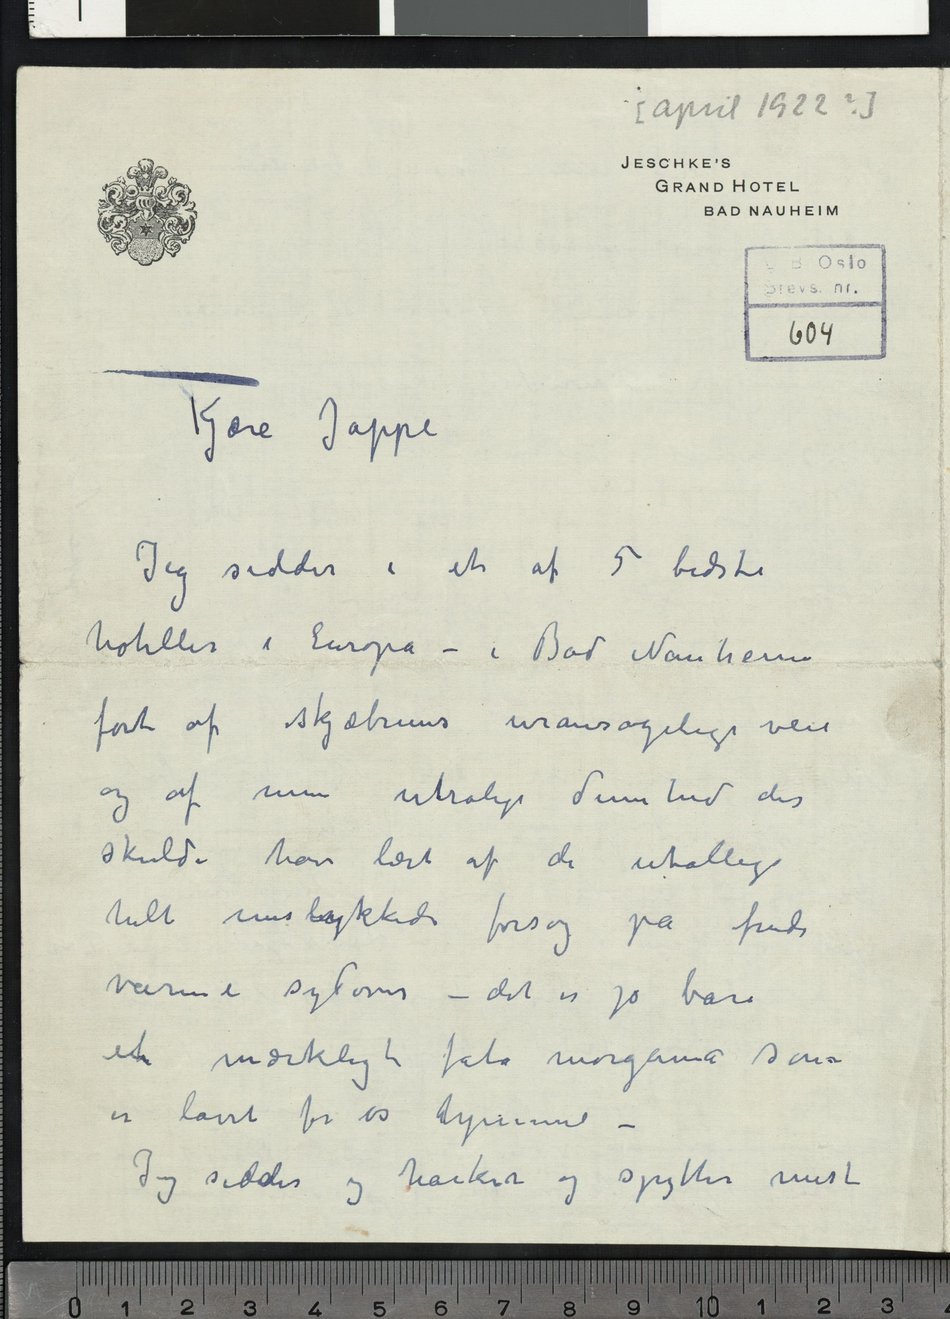 [april 1922?]
JESCHKE'S
GRAND HOTEL
BAD NAUHEIM
B. Oslo
Brevs. nr.
604
Kjære Jappe
Jeg sidder i et af 5 bedste
hoteller i Europa – i Bad Nauheim
ført af skjæbnens uransagelige veie
og af min utrolige dumhed der
skulde have lært af de utallige
helt mislykkede forsøg på finde
varme i syd over – det er jo bare
et mærkeligt fata morgana som
er lavet for os
Jeg sidder og harker og spytter mest
0 1 2 3 4 5 6 7 8 9 10 1 2 3 4